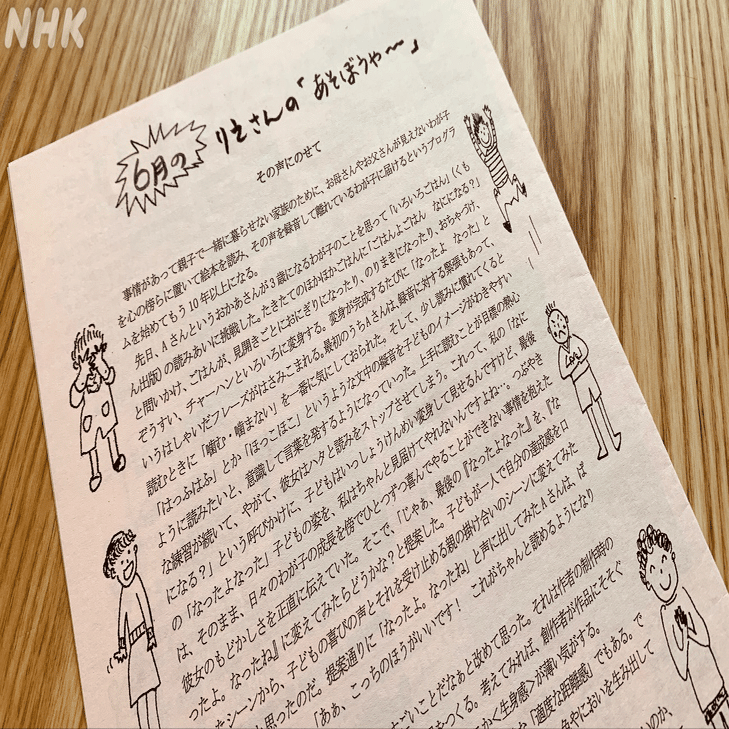 NHK
6月の
りえさんの「あそぼうや〜」
その声にのせて
事情があって親子で一緒に暮らせない家族のために、お母さんやお父さんが見えないわが子
を心の傍らに置いて絵本を読み、その声を録音して離れているわが子に届けるというプログラ
ムを始めてもう10年以上になる。
先日、Aさんというおかあさんが3歳になるわが子のことを思って「いろいろごはん」（くも
ん出版）の読みあいに挑戦した。たきたてのほかほかごはんに「ごはんよごはん なにになる？」
と問いかけ、ごはんが、見開きごとにおにぎりになったり、のりまきになったり、おちゃづけ、
ぞうすい、チャーハンといろいろに変身する。変身が完成するたびに「なったよ なった」と
いうはしゃいだフレーズがはさみこまれる。最初のうちAさんは、録音に対する緊張もあって、
読むときに「噛む・噛まない」を一番に気にしておられた。そして、少し読みに慣れてくると
「はっふはふ」とか「ほっこほこ」というような文中の擬音を子どものイメージがわきやすい
ように読みたいと、意識して言葉を発するようになっていった。上手に読むことが目標の熱心
な練習が続いて、やがて、彼女はハタと読みをストップさせてしまう。これって、私の「なに
になる？」という呼びかけに、子どもはいっしょうけんめい変身して見せるんですけど、最後
の「なったよなった」子どもの姿を、私はちゃんと見届けてやれないんですよね…。つぶやき
は、そのまま、日々のわが子の成長を傍でひとつずつ喜んでやることができない事情を抱えた
彼女のもどかしさを正直に伝えていた。そこで、「じゃあ、最後の『なったよなった』を、『な
ったよ。なったね』に変えてみたらどうかな？と提案した。子どもが一人で自分の達成感を口
たシーンから、子どもの喜びの声とそれを受け止める親の掛け合いのシーンに変えてみた
と思ったのだ。提案通りに「なったよ。なったね」と声に出してみたAさんは、ぱ
「ああ、こっちのほうがいいです！ これがちゃんと読めるようになり
ごいことだなぁと改めて思った。それは作者の制作時の
をつくる。考えてみれば、創作者が作品にそそぐ
かく〈生身感〉が薄い気がする。
な「適度な距離感」でもある。で
色やにおいを生み出して
いのか、